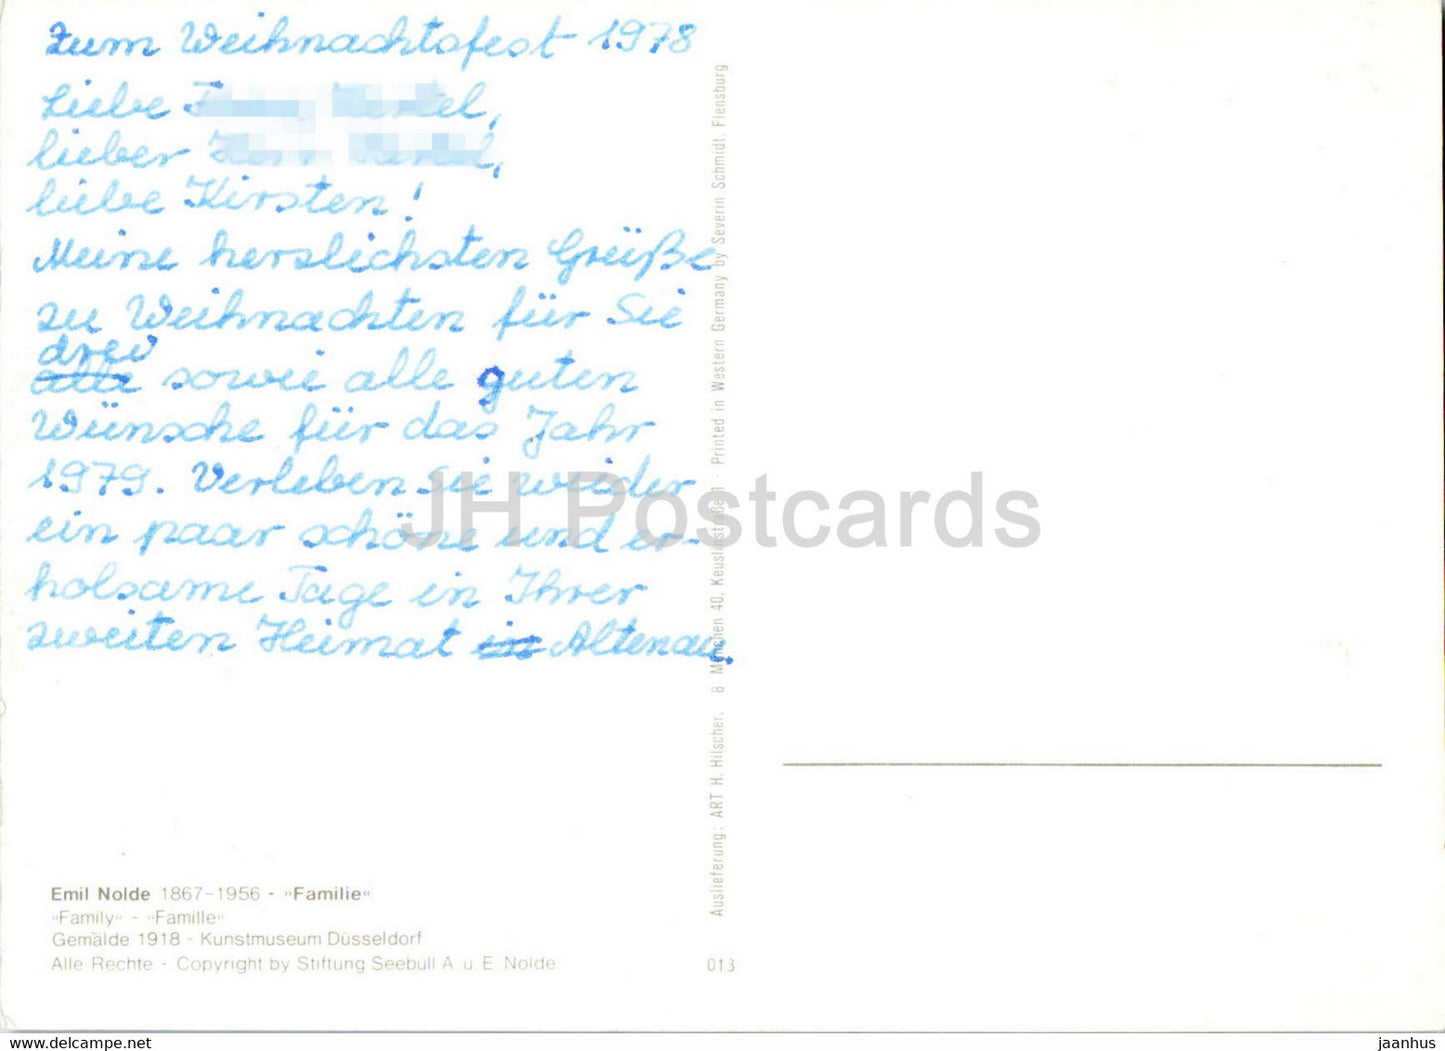 Zum Weihnachtsfest 1978
Liebe
lieber
liebe Kirsten!
Meine herzlichsten Grüße
zu Weihnachten für Sie
drei
alle sowie alle guten
Wünsche für das Jahr
1979. Verleben Sie wieder
ein paar schöne und er-
holsame Tage in Ihrer
zweiten Heimat in Altenau.
JH Postcards
Emil Nolde 1867-1956 - »Familie«
»Family« - »Famille«
Gemälde 1918 - Kunstmuseum Düsseldorf
Alle Rechte - Copyright by Stiftung Seebüll A. u. E. Nolde
013
Auslieferung: ART H. Hilscher, 8 München 40, Keuslinstraße 1 · Printed in Western Germany by Severin Schmidt, Flensburg
hip-point.com
jaanhus